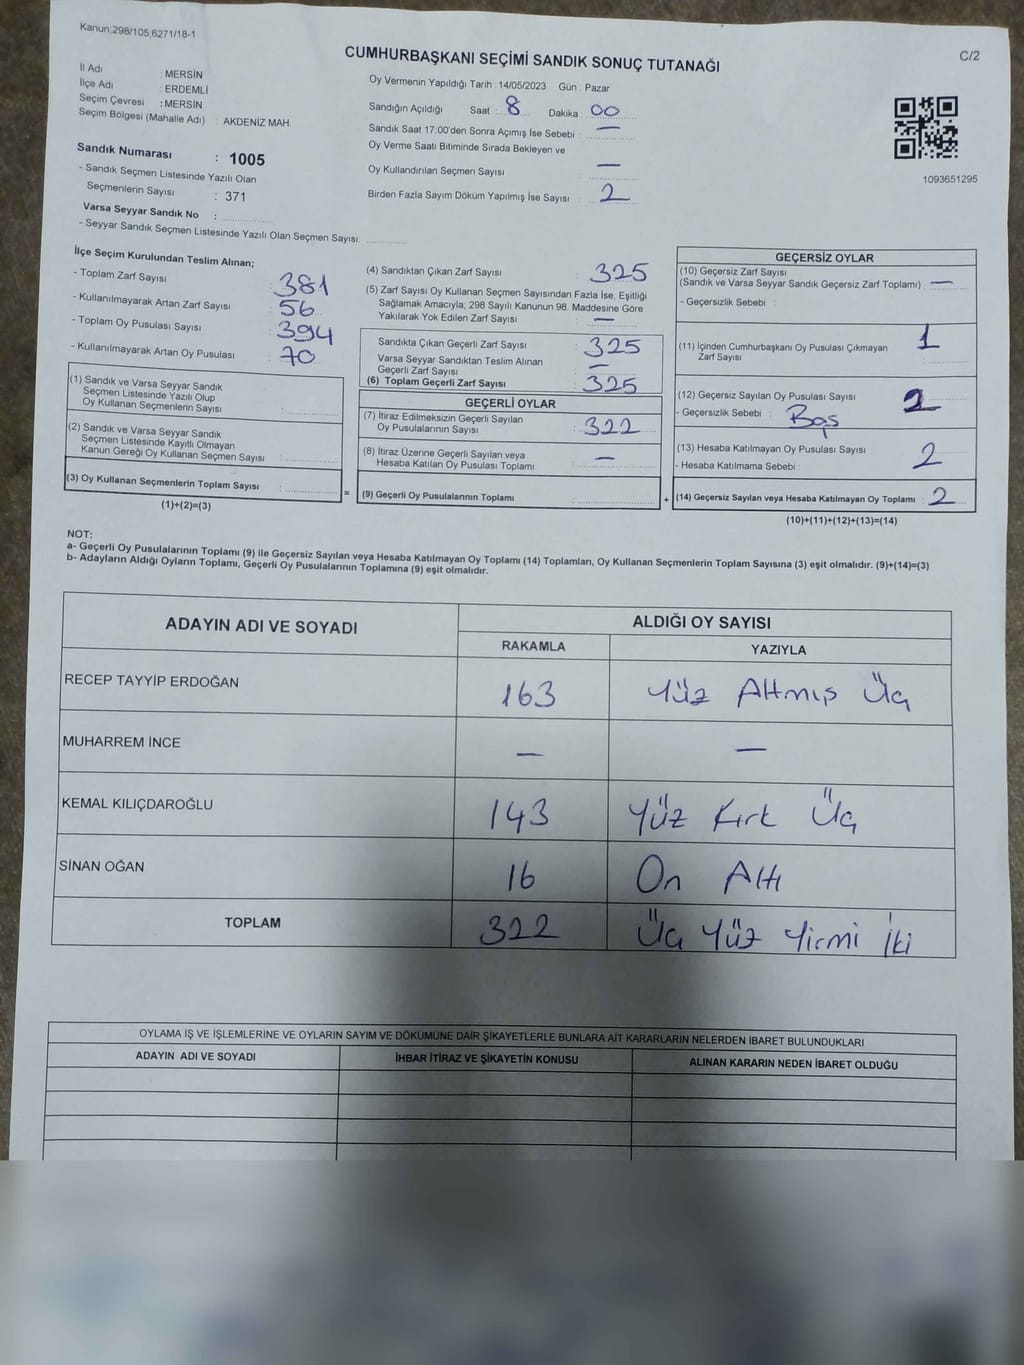 Kanun:298/105,6271/18-1
C/2
CUMHURBAŞKANI SEÇİMİ SANDIK SONUÇ TUTANAĞI
İl Adı : MERSİN
İlçe Adı : ERDEMLİ
Seçim Çevresi : MERSİN
Seçim Bölgesi (Mahalle Adı) : AKDENİZ MAH.
Sandık Numarası : 1005
- Sandık Seçmen Listesinde Yazılı Olan
Seçmenlerin Sayısı : 371
Varsa Seyyar Sandık No :
- Seyyar Sandık Seçmen Listesinde Yazılı Olan Seçmen Sayısı:
Oy Vermenin Yapıldığı Tarih : 14/05/2023 Gün : Pazar
Sandığın Açıldığı Saat : 8 Dakika : 00
Sandık Saat 17:00'den Sonra Açımış İse Sebebi : —
Oy Verme Saati Bitiminde Sırada Bekleyen ve
Oy Kullandırılan Seçmen Sayısı —
Birden Fazla Sayım Döküm Yapılmış İse Sayısı : 2
1093651295
İlçe Seçim Kurulundan Teslim Alınan;
- Toplam Zarf Sayısı : 381
- Kullanılmayarak Artan Zarf Sayısı : 56
- Toplam Oy Pusulası Sayısı : 394
- Kullanılmayarak Artan Oy Pusulası : 70
(1) Sandık ve Varsa Seyyar Sandık
Seçmen Listesinde Yazılı Olup
Oy Kullanan Seçmenlerin Sayısı :
(2) Sandık ve Varsa Seyyar Sandık
Seçmen Listesinde Kayıtlı Olmayan
Kanun Gereği Oy Kullanan Seçmen Sayısı :
(3) Oy Kullanan Seçmenlerin Toplam Sayısı :
(1)+(2)=(3)
=
(4) Sandıktan Çıkan Zarf Sayısı : 325
(5) Zarf Sayısı Oy Kullanan Seçmen Sayısından Fazla İse, Eşitliği
Sağlamak Amacıyla; 298 Sayılı Kanunun 98. Maddesine Göre
Yakılarak Yok Edilen Zarf Sayısı : —
Sandıkta Çıkan Geçerli Zarf Sayısı : 325
Varsa Seyyar Sandıktan Teslim Alınan
Geçerli Zarf Sayısı : —
(6) Toplam Geçerli Zarf Sayısı : 325
GEÇERLİ OYLAR
(7) İtiraz Edilmeksizin Geçerli Sayılan
Oy Pusulalarının Sayısı : 322
(8) İtiraz Üzerine Geçerli Sayılan veya
Hesaba Katılan Oy Pusulası Toplamı : —
(9) Geçerli Oy Pusulalarının Toplamı :
+
GEÇERSİZ OYLAR
(10) Geçersiz Zarf Sayısı
(Sandık ve Varsa Seyyar Sandık Geçersiz Zarf Toplamı) : —
- Geçersizlik Sebebi :
(11) İçinden Cumhurbaşkanı Oy Pusulası Çıkmayan
Zarf Sayısı : 1
(12) Geçersiz Sayılan Oy Pusulası Sayısı : 2
- Geçersizlik Sebebi : Boş
(13) Hesaba Katılmayan Oy Pusulası Sayısı : 2
- Hesaba Katılmama Sebebi :
(14) Geçersiz Sayılan veya Hesaba Katılmayan Oy Toplamı : 2
(10)+(11)+(12)+(13)=(14)
NOT:
a- Geçerli Oy Pusulalarının Toplamı (9) ile Geçersiz Sayılan veya Hesaba Katılmayan Oy Toplamı (14) Toplamları, Oy Kullanan Seçmenlerin Toplam Sayısına (3) eşit olmalıdır. (9)+(14)=(3)
b- Adayların Aldığı Oyların Toplamı, Geçerli Oy Pusulalarının Toplamına (9) eşit olmalıdır.
ADAYIN ADI VE SOYADI ALDIĞI OY SAYISI
RAKAMLA YAZIYLA
RECEP TAYYİP ERDOĞAN 163 Yüz Altmış Üç
MUHARREM İNCE — —
KEMAL KILIÇDAROĞLU 143 Yüz Kırk Üç
SİNAN OĞAN 16 On Altı
TOPLAM 322 Üç Yüz Yirmi İki
OYLAMA İŞ VE İŞLEMLERİNE VE OYLARIN SAYIM VE DÖKÜMÜNE DAİR ŞİKAYETLERLE BUNLARA AİT KARARLARIN NELERDEN İBARET BULUNDUKLARI
ADAYIN ADI VE SOYADI İHBAR İTİRAZ VE ŞİKAYETİN KONUSU ALINAN KARARIN NEDEN İBARET OLDUĞU